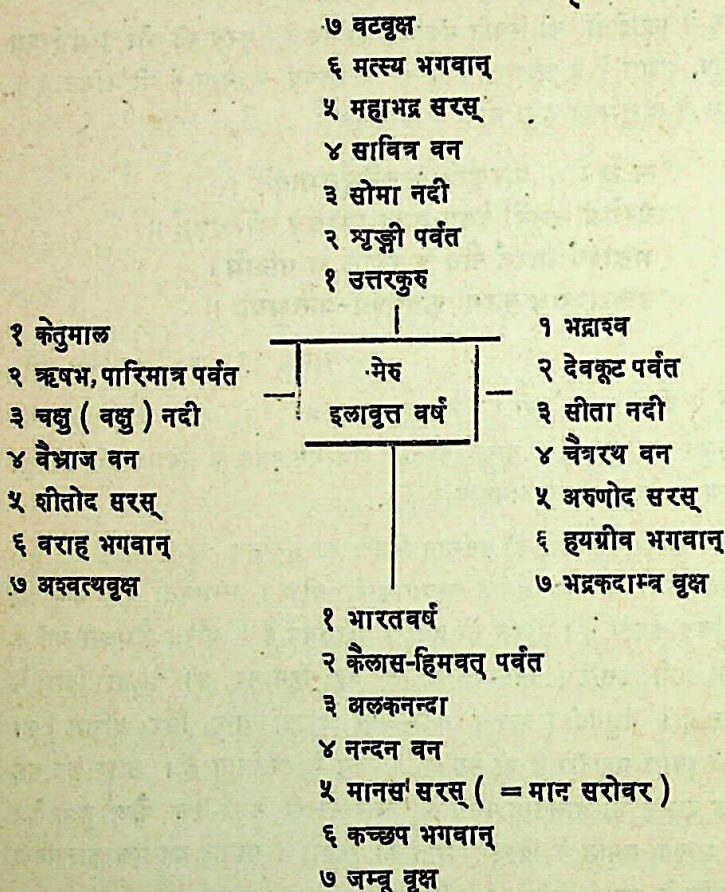 ७ वटवृक्ष
६ मत्स्य भगवान्
५ महाभद्र सरस्
४ सावित्र वन
३ सोमा नदी
२ शृङ्गी पर्वत
१ उत्तरकुरु
१ केतुमाल
२ ऋषभ, पारिमात्र पर्वत
३ चक्षु ( वक्षु ) नदी
४ वैभ्राज वन
५ शीतोद सरस्
६ वराह भगवान्
७ अश्वत्थवृक्ष
मेरु
इलावृत्त वर्ष
१ भद्राश्व
२ देवकूट पर्वत
३ सीता नदी
४ चैत्ररथ वन
५ अरुणोद सरस्
६ हयग्रीव भगवान्
७ भद्रकदाम्ब वृक्ष
१ भारतवर्ष
२ कैलास-हिमवत् पर्वत
३ अलकनन्दा
४ नन्दन वन
५ मानस सरस् ( = मान सरोवर )
६ कच्छप भगवान्
७ जम्बू वृक्ष